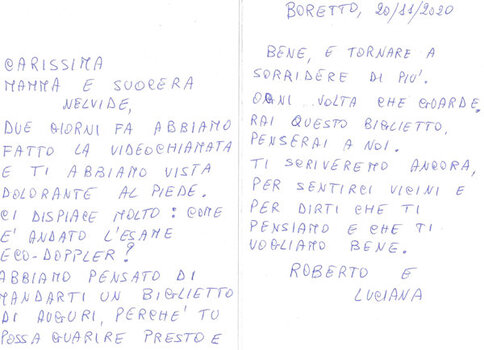 CARISSIMA
MAMMA E SUOCERA
NELVIDE,
DUE GIORNI FA ABBIAMO
FATTO LA VIDEOCHIAMATA
E TI ABBIAMO VISTA
DOLORANTE AL PIEDE.
CI DISPIACE MOLTO: COME
E' ANDATO L'ESAME
ECO-DOPPLER?
ABBIAMO PENSATO DI
MANDARTI UN BIGLIETTO
DI AUGURI, PERCHE' TU
POSSA GUARIRE PRESTO E
BORETTO, 20/11/2020
BENE, E TORNARE A
SORRIDERE DI PIU'.
OGNI VOLTA CHE GUARDE
RAI QUESTO BIGLIETTO,
PENSERAI A NOI.
TI SCRIVEREMO ANCORA,
PER SENTIRCI VICINI E
PER DIRTI CHE TI
PENSIAMO E CHE TI
VOGLIAMO BENE.
ROBERTO E
LUCIANA